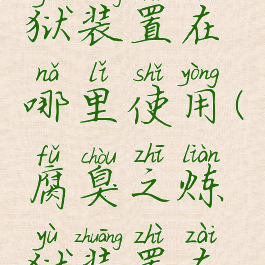 狱装置在
nǎ lǐ shǐ yòng
哪里使用(
fǔ chòu zhī liàn
腐臭之炼
yù zhuāng zhì zài
狱装置在